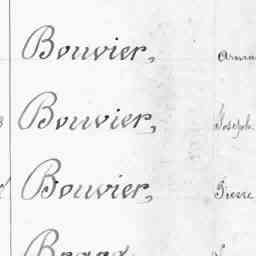 Bouvier,
Bouvier, Joseph
Bouvier, Pierre